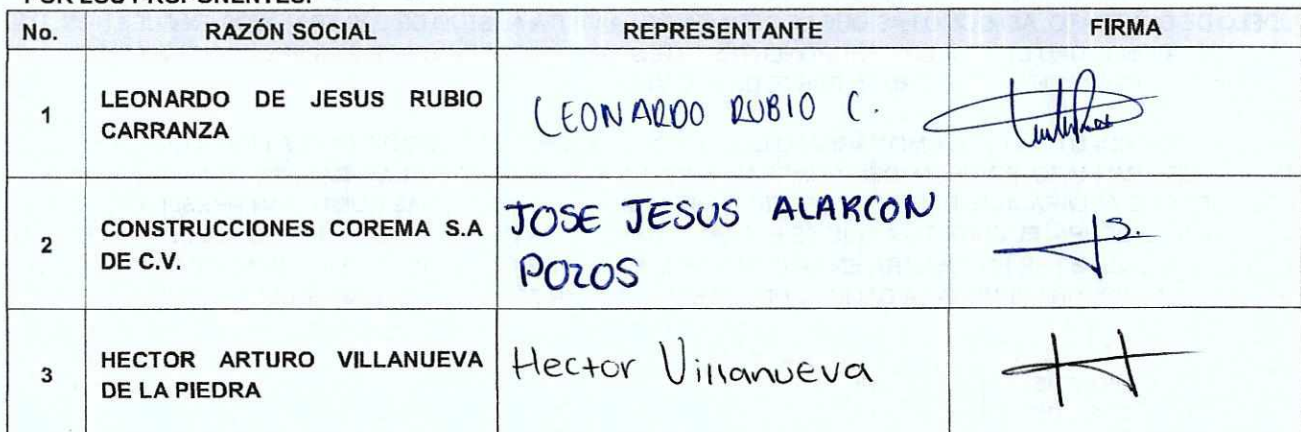 POR LOS PROPONENTES:
No. RAZÓN SOCIAL REPRESENTANTE FIRMA
1 LEONARDO DE JESUS RUBIO CARRANZA LEONARDO RUBIO C.
2 CONSTRUCCIONES COREMA S.A DE C.V. JOSE JESUS ALARCON POZOS
3 HECTOR ARTURO VILLANUEVA DE LA PIEDRA Hector Villanueva